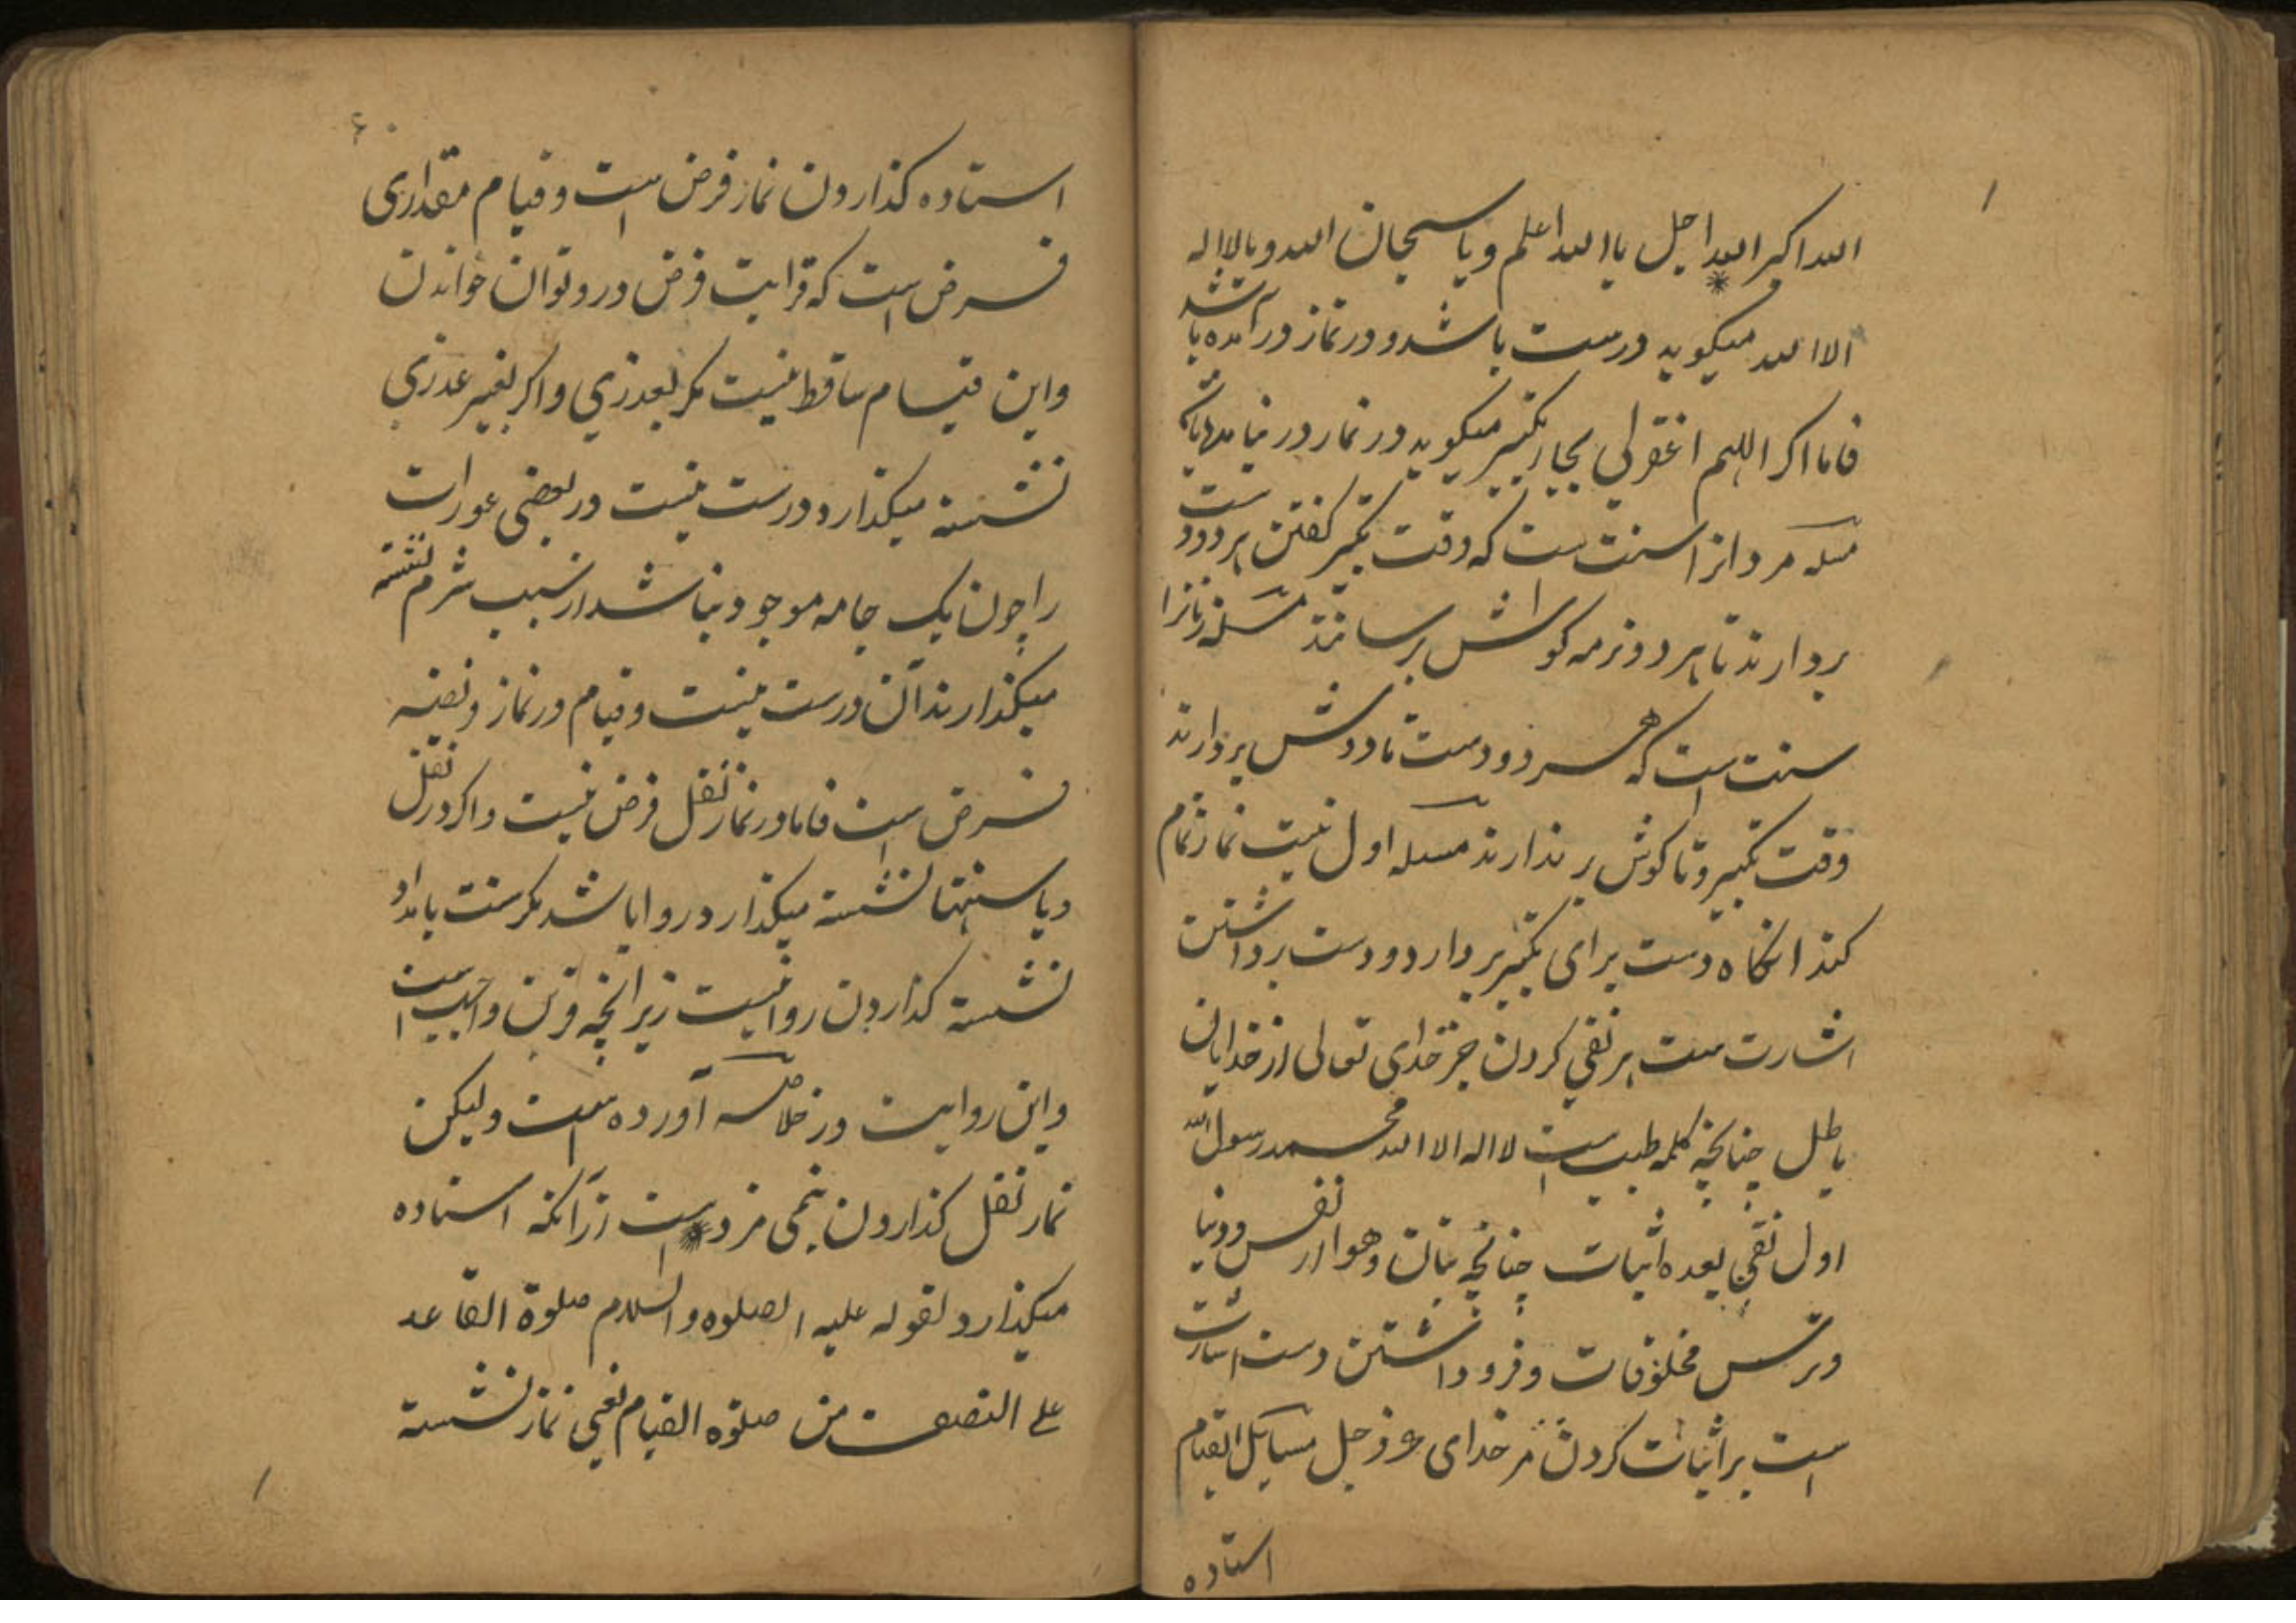 الله اکبر الله اجل یا الله اعلم و یا سبحان الله و یا لا اله
الا الله میگوید درست باشد و در نماز در آمده باشد
فاما اکر اللهم اغفرلی بجا تکبیر میگوید در نماز در نیامده باشد
مسله مردانرا سنت است که وقت تکبیر کفتن هر دو دست
بردارند تا بهر دو نرمه کوش برسانند مسله زنانرا
سنت است که هر دو دست تا دوش بردارند
وقت تکبیر و تا کوش برندارند مسله اول نیت نماز تمام
کند انکاه دست برای تکبیر بردارد و دست برداشتن
اشارت ست بر نفی کردن جز خدای تعالی از خدایان
باطل چنانچه کلمه طیب است لا اله الا الله محمد رسول الله
اول نفی بعده اثبات چنانچه بتان و هوا از نفس و دنیا
و ترس مخلوقات و فرود داشتن دست اشارت
است بر اثبات کردن مر خدای عز و جل مسایل القیام
استاده
۶۰
استاده کذاردن نماز فرض است و قیام مقداری
فرض است که قرایت فرض درو توان خواندن
و این قیام ساقط نیست مکر بعذری و اکر بغیر عذری
نشسته میکذارد درست نیست در بعضی عورات
را چون یک جامه موجود نباشد از سبب شرم نشسته
میکذارند آن درست نیست و قیام در نماز فریضه
فرض است فاما در نماز نفل فرض نیست و اکر در نفل
و یا سنتها نشسته میکذارد روا باشد مکر سنت بامداد
نشسته کذاردن روا نیست زیرانچه قرین واجب است
و این روایت در خلاصه آورده است ولیکن
نماز نفل کذاردن بنیمی مزد است ازانکه استاده
میکذارد لقوله علیه الصلوه والسلام صلوة القاعد
علی النصف من صلوة القیام یعنی نماز نشسته